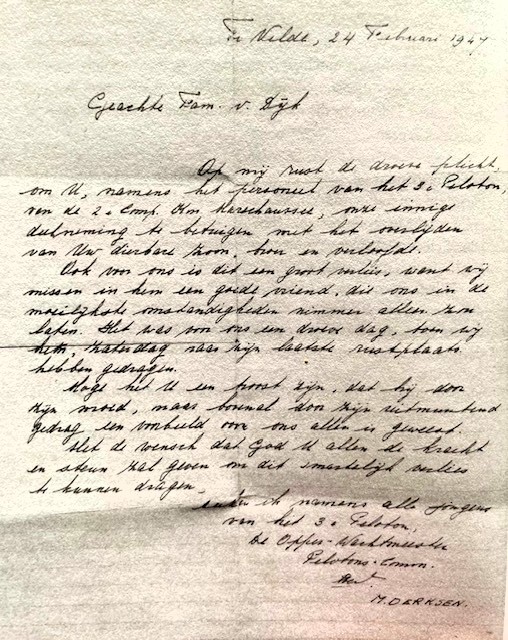 Te Velde, 24 Februari 1947
Geachte Fam. v. Dijk
Op mij rust de droeve plicht,
om U, namens het personeel van het 3e Peloton,
van de 2e Comp. Kon Marechaussee, onze innige
deelneming te betuigen met het overlijden
van Uw dierbare zoon, broer en verloofde.
Ook voor ons is dit een groot verlies, want wij
missen in hem een goede vriend, die ons in de
moeilijkste omstandigheden nimmer alleen zou
laten. Het was voor ons een droeve dag, toen wij
hem, Zaterdag naar zijn laatste rustplaats
hebben gedragen.
Moge het U een troost zijn, dat hij door
zijn moed, maar bovenal door zijn uitmuntend
gedrag een voorbeeld voor ons allen is geweest.
Met de wensch dat God U allen de kracht
en steun zal geven om dit smartelijk verlies
te kunnen dragen,
ik namens alle jongens
van het 3e Peloton,
De Opper-Wachtmeester
Pelotons-Comm.
M. DERKSEN.